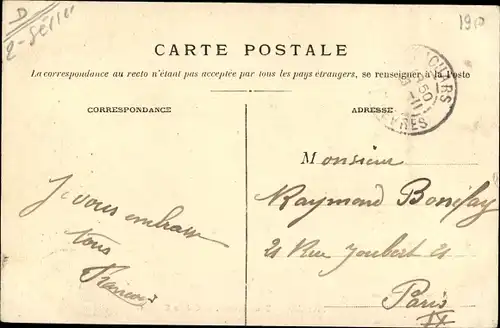 D
2-Sèvres
1910
CARTE POSTALE
La correspondance au recto n'étant pas acceptée par tous les pays étrangers, se renseigner à la Poste
CORRESPONDANCE
ADRESSE
Monsieur
Raymond Bonifay
21 Rue Joubert 21
Paris
IX
Je vous embrasse
tous